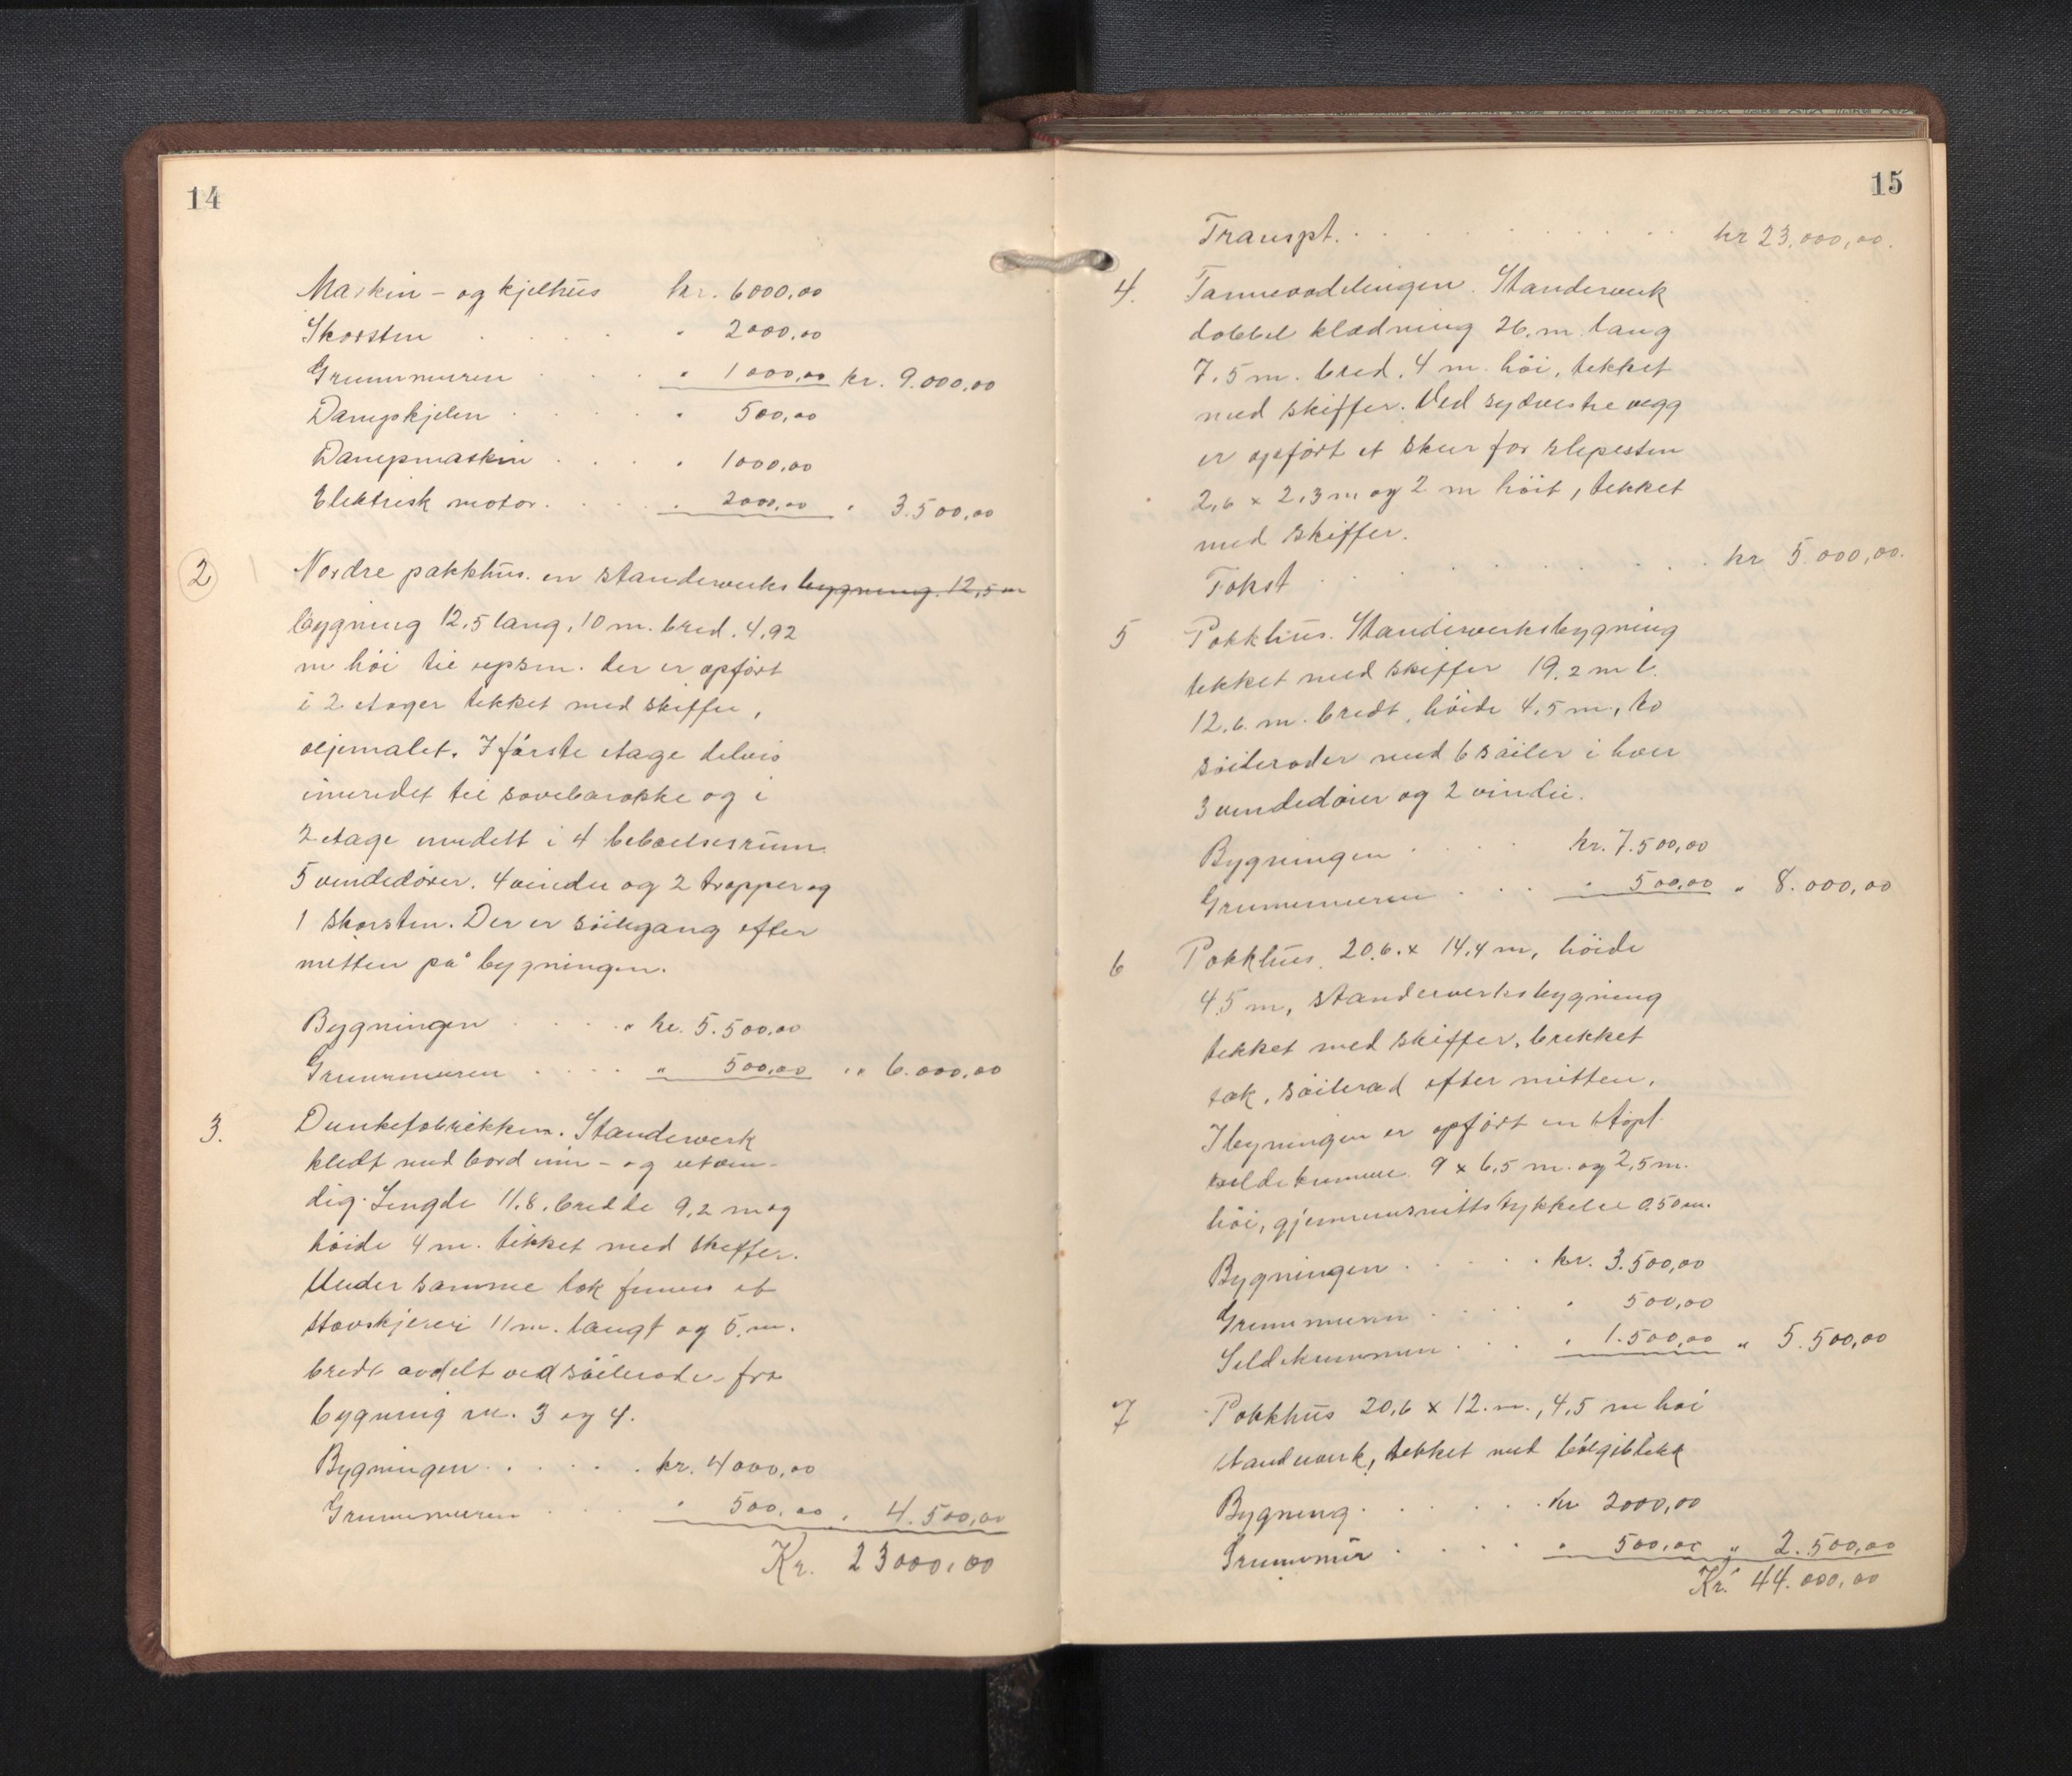 14
Maskin - og kjelhus kr. 6000,00
Skorsten . . . . " 2000,00
Grunnmuren . . . " 1000,00 kr. 9.000,00
Dampkjelen . . . . " 500,00
Dampmaskin . . . . " 1000,00
Elektrisk motor. . . . " 2000,00 " 3.500,00
2 Nordre pakkhus. en standerverks bygning. 12,5 m
bygning 12,5 lang, 10 m. bred, 4,92
m høi til røpsen. der er opført
i 2 etager tekket med skiffer,
oljemalet. I første etage delvis
innredet til sovebarakke og i
2 etage inndelt i 4 beboelsesrum
5 vendedører. 4 vinduer og 2 trapper og
1 skorsten. Der er søilegang efter
mitten på bygningen.
Bygningen . . . . " kr. 5.500,00
Grunnmuren . . . . " 500,00 " " 6.000,00
3. Dunkefabrikken. Standerverk
kledt med bord inn - og utven-
dig. Lengde 11,8, bredde 9,2 m og
høide 4 m. tekket med skiffer.
Under samme tak finnes et
stavskjereri 11 m. langt og 5, m.
bredt avdelt ved søilerader fra
bygning nr. 3 og 4.
Bygningen . . . . . kr. 4000,00
Grunnmuren . . . " 500,00 " 4.500,00
Kr. 23000,00
15
Transpt. . . . . . . . . . kr 23.000,00.
4. Tønneavdelingen. Standerverk
dobbel klædning 26, m. lang
7,5 m. bred, 4 m. høi, tekket
med skiffer. Ved sydvestre vegg
er opført et skur for slipesten
2,6 x 2,3 m og 2 m høit, tekket
med skiffer.
Takst . . . . . . . . . kr 5.000,00.
5 Pakkhus. Standerverksbygning
tekket med skiffer 19,2 m l.
12,6 m. bredt, høide 4,5 m, to
søilerader med 6 søiler i hver
3 vendedører og 2 vinduer.
Bygningen . . . . kr. 7.500,00
Grunnmuren . . . " 500,00 " 8.000,00
6 Pakkhus. 20,6 x 14,4 m, høide
4,5 m, standerverksbygning
tekket med skiffer, brekket
tak, søilerad efter mitten.
I bygningen er opført en støpt
sildekumme 9 x 6,5 m. og 2,5 m.
høi, gjennemsnittstykkelse 0,50 m.
Bygningen . . . . . kr. 3.500,00
Grunnmuren . . . . " 500,00
Sildekummen . . . " 1.500,00 " 5.500,00
7 Pakkhus 20,6 x 12. m., 4,5 m høi
standerverk, tekket med bølgeblekk
Bygning . . . . . . kr 2000,00
Grunnmur . . . . " 500,00 " 2.500,00
Kr. 44.000,00